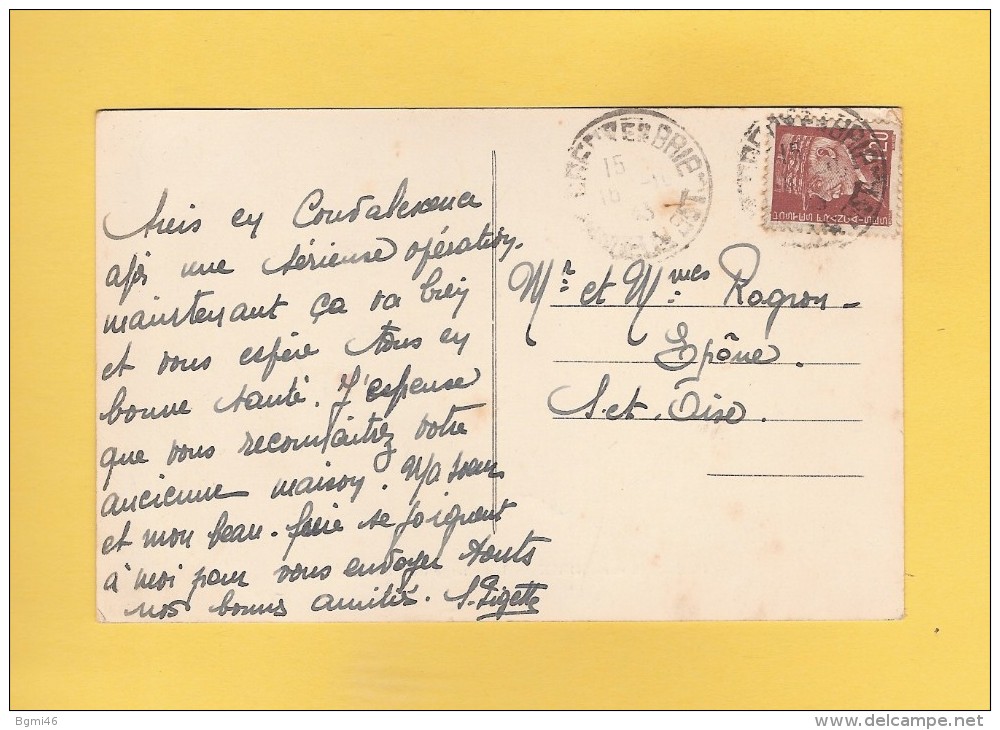 Suis en Convalescence
après une sérieuse opération,
maintenant ça va bien
et vous espère tous en
bonne santé. J'espense
que vous reconnaitrez votre
ancienne maison. Ma soeur
et mon beau-frère se joignent
à moi pour vous envoyer touts
nos bonnes amitiés.
Mr et Mmes Rogron
Epône.
S. et. Oise.
BRIE
15
16
43
0,70
Bgmi46
www.delcampe.net